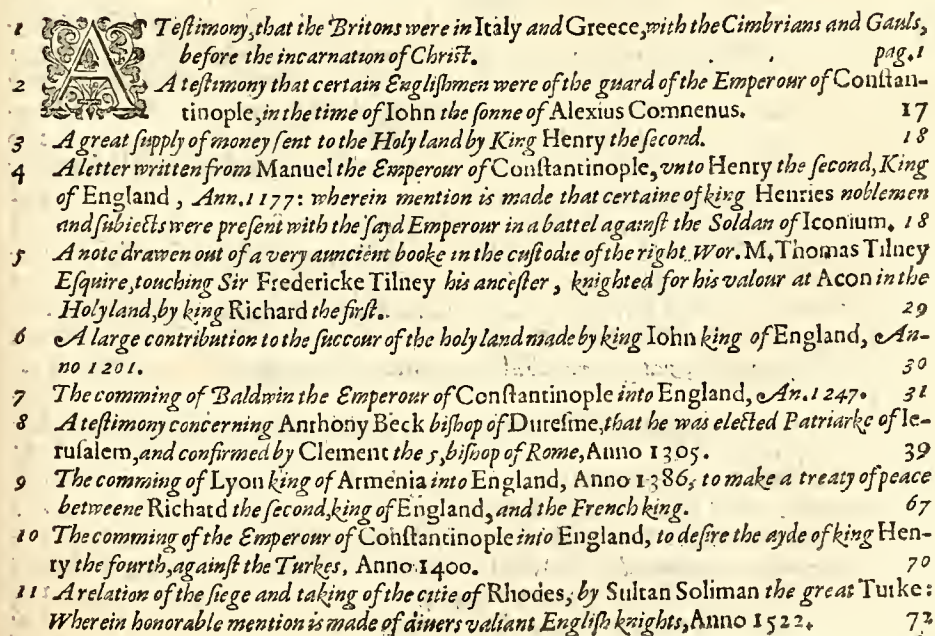 1 A Teſtimony, that the Britons were in Italy and Greece, with the Cimbrians and Gauls,
before the incarnation of Chriſt. pag.1
2 A teſtimony that certain Engliſhmen were of the guard of the Emperour of Conſtan-
tinople, in the time of Iohn the ſonne of Alexius Comnenus. 17
3 A great ſupply of money ſent to the Holy land by King Henry the ſecond. 18
4 A letter written from Manuel the Emperour of Conſtantinople, vnto Henry the ſecond, King
of England, Ann.1177: wherein mention is made that certaine of king Henries noblemen
and ſubiects were preſent with the ſayd Emperour in a battel againſt the Soldan of Iconium. 18
5 A note drawen out of a very auncient booke in the cuſtodie of the right Wor. M. Thomas Tilney
Eſquire, touching Sir Fredericke Tilney his anceſter, knighted for his valour at Acon in the
Holy land, by king Richard the firſt. 29
6 A large contribution to the ſuccour of the holy land made by king Iohn king of England, An-
no 1201. 30
7 The comming of Baldwin the Emperour of Conſtantinople into England, An.1247. 31
8 A teſtimony concerning Anthony Beck biſhop of Dureſme, that he was elected Patriarke of Ie-
ruſalem, and confirmed by Clement the 5, biſhop of Rome, Anno 1305. 39
9 The comming of Lyon king of Armenia into England, Anno 1386, to make a treaty of peace
betweene Richard the ſecond, king of England, and the French king. 67
10 The comming of the Emperour of Conſtantinople into England, to deſire the ayde of king Hen-
ry the fourth, againſt the Turkes, Anno 1400. 70
11 A relation of the ſiege and taking of the citie of Rhodes, by Sultan Soliman the great Turke:
Wherein honorable mention is made of diuers valiant Engliſh knights, Anno 1522. 72